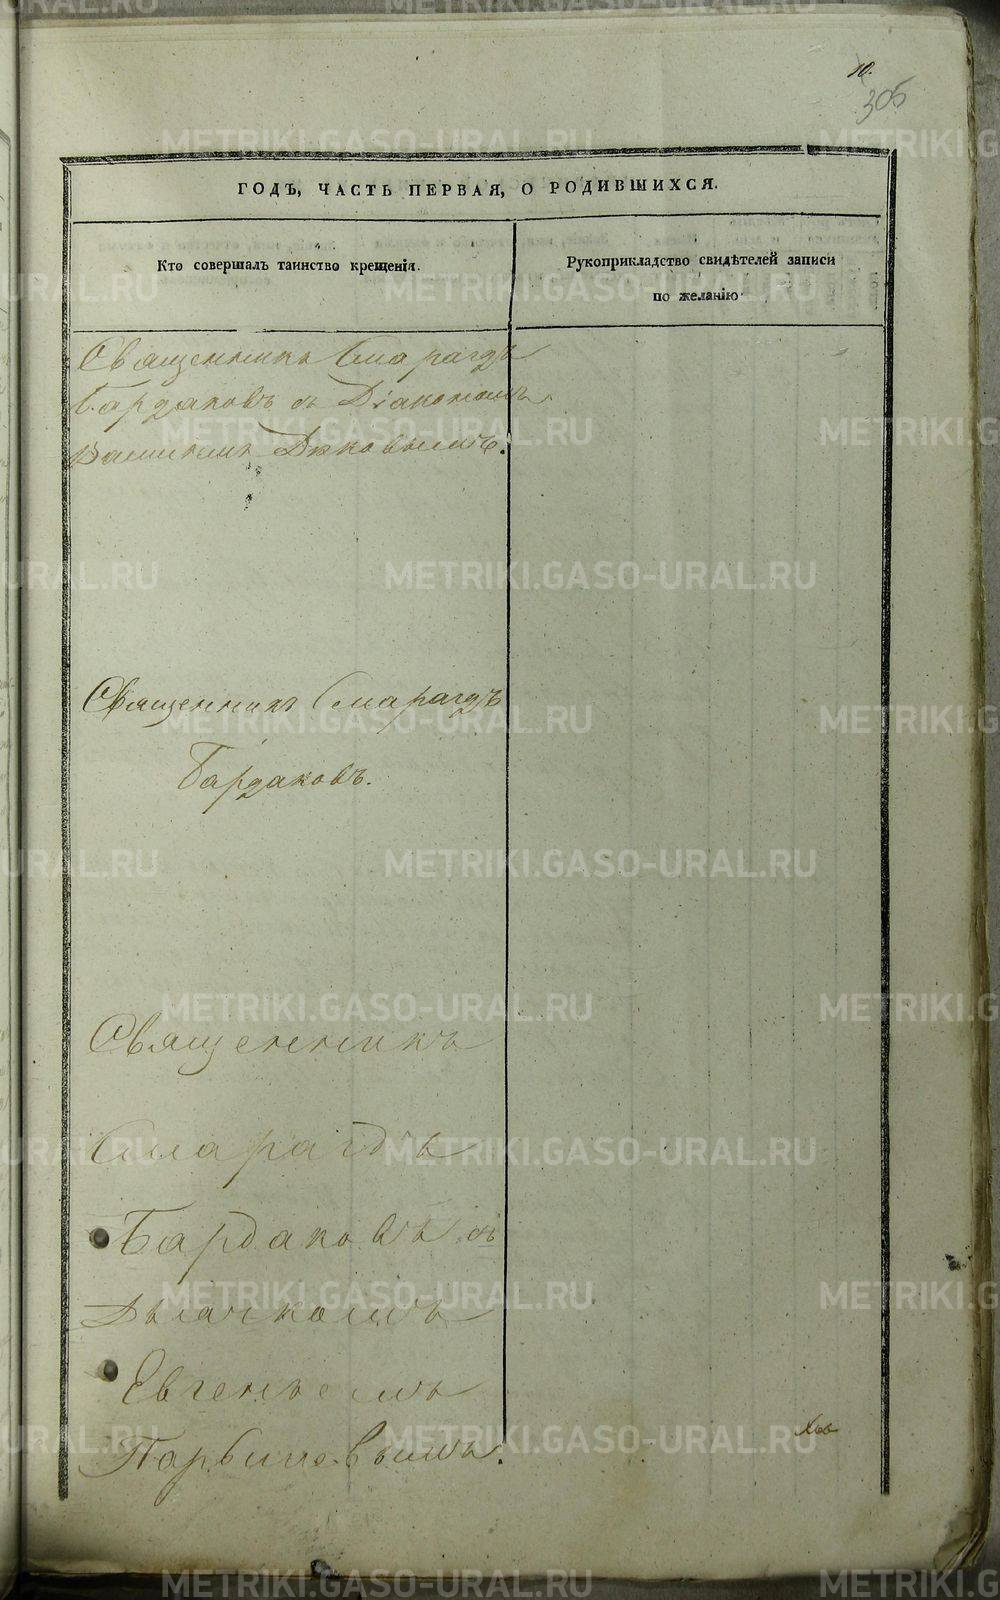 10.
305
ГОДЪ, ЧАСТЬ ПЕРВАЯ, О РОДИВШИХСЯ.
Кто совершалъ таинство крещенія.
Рукоприкладство свидѣтелей записи
по желанію
Священникъ Смарагдъ
Бардаковъ съ Діакономъ
Священникъ Смарагдъ
Бардаковъ.
Священникъ
Смарагдъ
Бардаковъ съ
Дьячкомъ
Евгеньемъ
METRIKI.GASO-URAL.RU